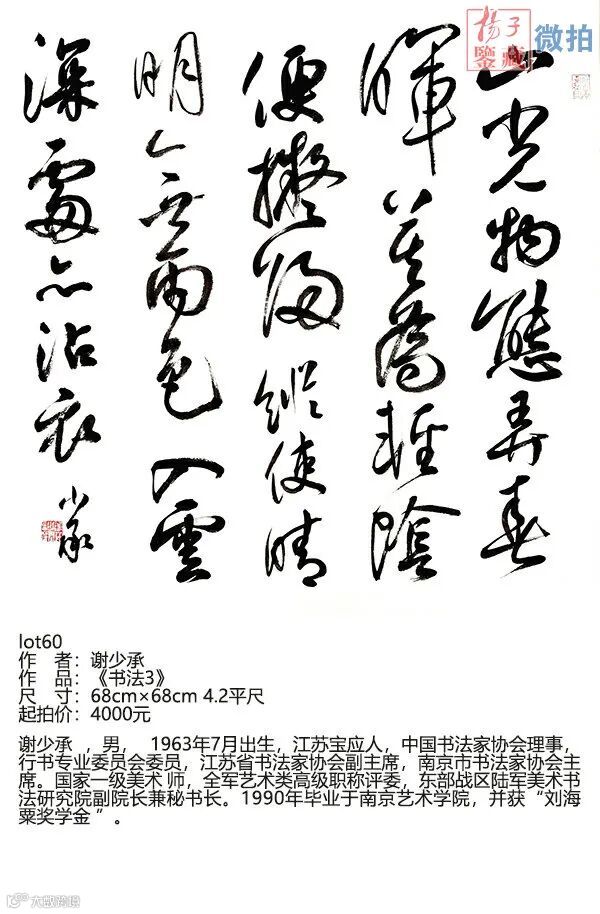 揚子
鑒藏
微拍
山光物態弄春
暉莫為輕陰
便擬歸縱使晴
明無雨色入雲
深處亦沾衣
少承
lot60
作 者：谢少承
作 品：《书法3》
尺 寸：68cm×68cm 4.2平尺
起拍价：4000元
谢少承 ，男， 1963年7月出生，江苏宝应人，中国书法家协会理事，
行书专业委员会委员，江苏省书法家协会副主席，南京市书法家协会主
席。国家一级美术 师，全军艺术类高级职称评委，东部战区陆军美术书
法研究院副院长兼秘书长。1990年毕业于南京艺术学院，并获“刘海
粟奖学金 ”。
大数跨境